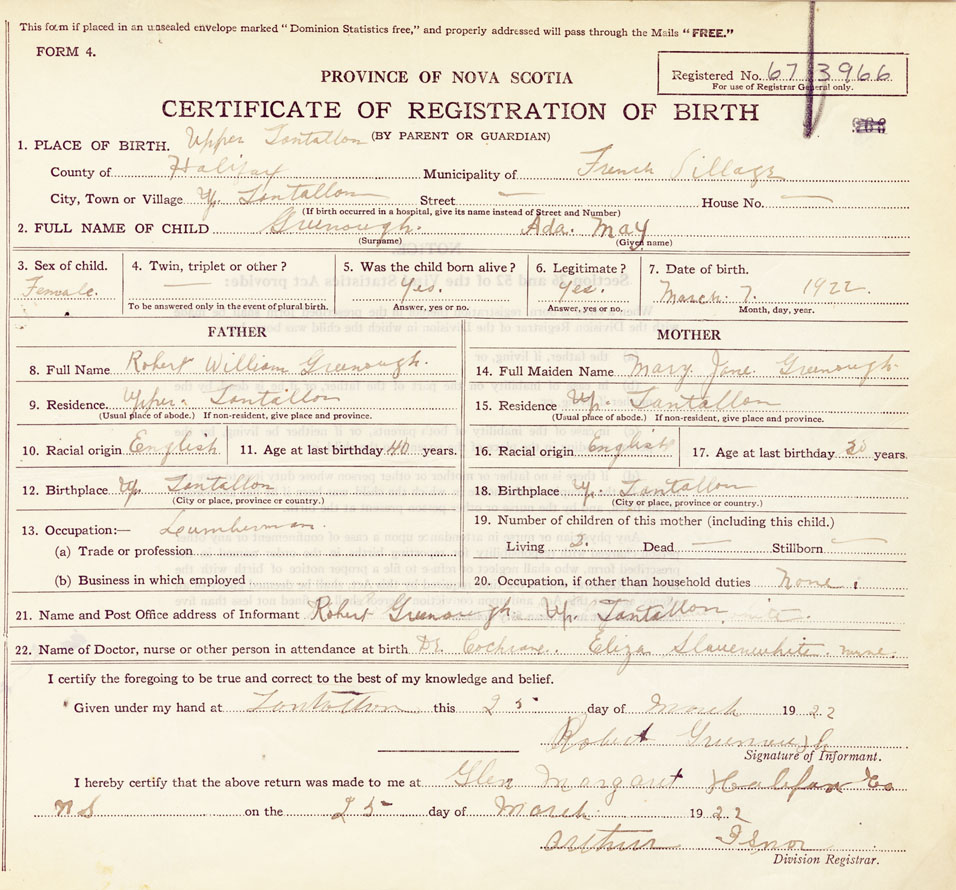 This form if placed in an unsealed envelope marked "Dominion Statistics free," and properly addressed will pass through the Mails "FREE."
FORM 4.
PROVINCE OF NOVA SCOTIA
Registered No. 67 3966
For use of Registrar General only.
CERTIFICATE OF REGISTRATION OF BIRTH
(BY PARENT OR GUARDIAN)
1. PLACE OF BIRTH. Upper Tantallon
County of Halifax Municipality of French Village
City, Town or Village Up. Tantallon Street — House No. —
(If birth occurred in a hospital, give its name instead of Street and Number)
2. FULL NAME OF CHILD Greenough. Ada. May
(Surname) (Given name)
3. Sex of child. 4. Twin, triplet or other? 5. Was the child born alive? 6. Legitimate? 7. Date of birth.
Female. — Yes. Yes. March. 7. 1922.
To be answered only in the event of plural birth. Answer, yes or no. Answer, yes or no. Month, day, year.
FATHER MOTHER
8. Full Name Robert William Greenough. 14. Full Maiden Name Mary Jane Greenough.
9. Residence. Upper. Tantallon 15. Residence Up. Tantallon
(Usual place of abode.) If non-resident, give place and province. (Usual place of abode.) If non-resident, give place and province.
10. Racial origin English 11. Age at last birthday 40 years. 16. Racial origin English 17. Age at last birthday years.
12. Birthplace Up. Tantallon 18. Birthplace Up. Tantallon
(City or place, province or country.) (City or place, province or country.)
13. Occupation:— Lumberman. 19. Number of children of this mother (including this child.)
(a) Trade or profession Living 2. Dead — Stillborn —
(b) Business in which employed 20. Occupation, if other than household duties None.
21. Name and Post Office address of Informant Robert Greenough. Up. Tantallon
22. Name of Doctor, nurse or other person in attendance at birth Dr. Cochrane. Eliza Slauenwhite. nurse.
I certify the foregoing to be true and correct to the best of my knowledge and belief.
Given under my hand at Tantallon this 25 day of March 1922
Robert Greenough
Signature of Informant.
I hereby certify that the above return was made to me at Glen Margaret Halifax Co
NS on the 25 day of March 1922
Arthur Isnor
Division Registrar.